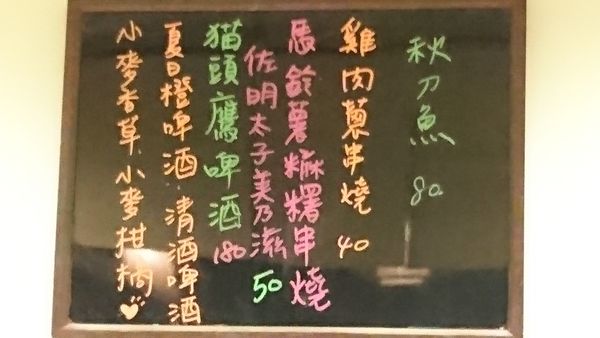 秋刀魚 80
雞肉蔥串燒 40
馬鈴薯麻糬串燒
佐明太子美乃滋 50
猫頭鷹啤酒 180
夏日橙啤酒.清酒啤酒
小麥香草.小麥柑橘